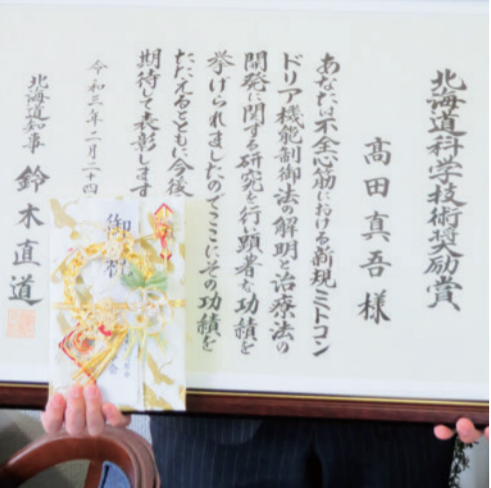 北海道科学技術奨励賞
髙田真吾様
あなたは不全心筋における新規ミトコン
ドリア機能制御法の解明と治療法の
開発に関する研究を行い顕著な功績を
挙げられましたのでここにその功績を
たたえるとともに今後
期待して表彰します
令和三年二月二十四
北海道知事 鈴木直道
御祝